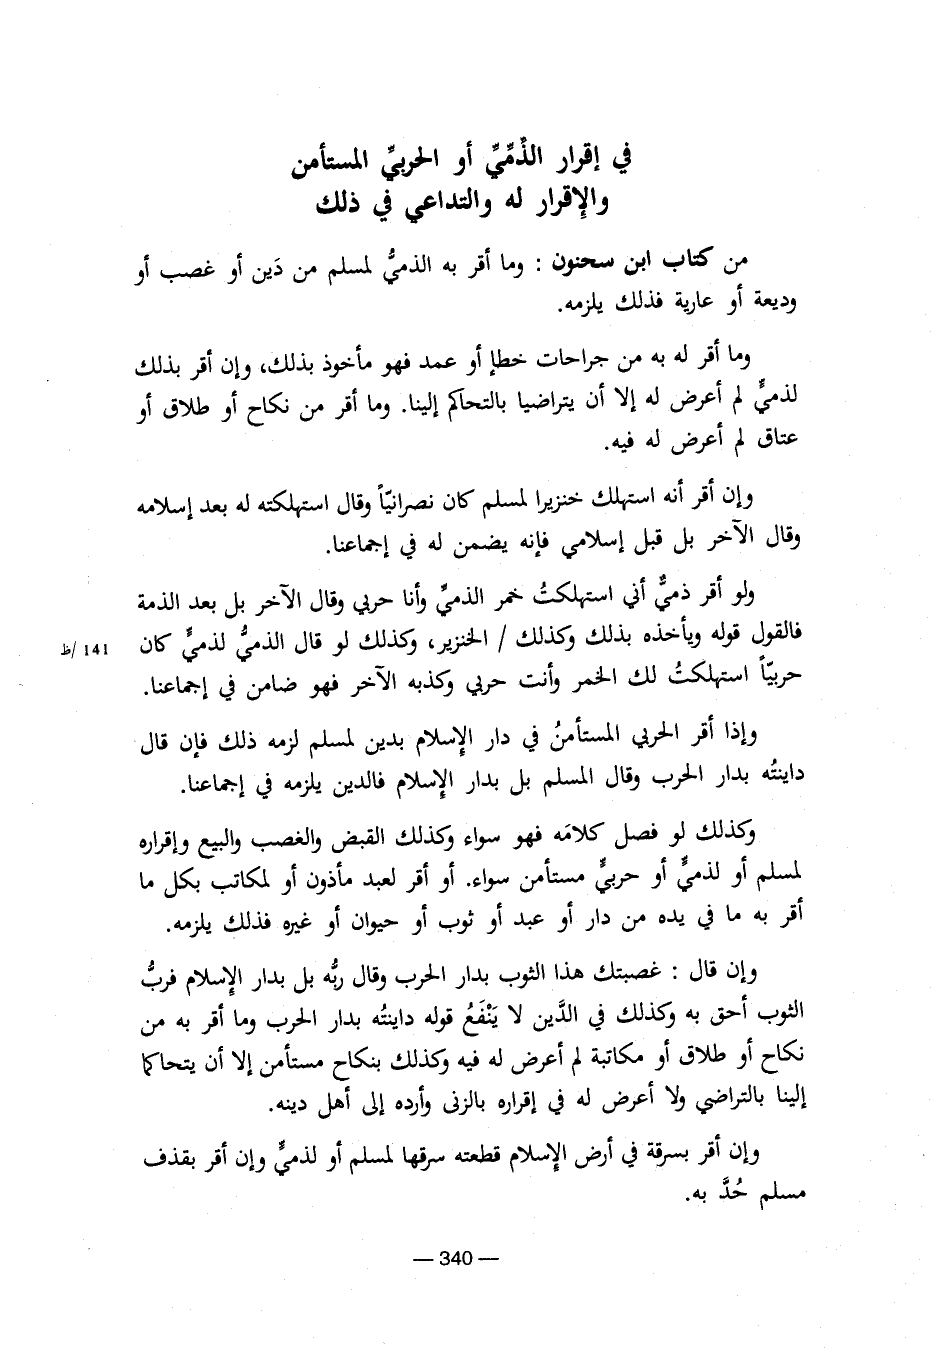 في إقرار الذِّمِّيِّ أو الحربيِّ المستأمن
والإقرار له والتداعي في ذلك
من كتاب ابن سحنون : وما أقر به الذميُّ لمسلم من دَين أو غصب أو
وديعة أو عارية فذلك يلزمه.
وما أقر له به من جراحات خطإ أو عمد فهو مأخوذ بذلك، وإن أقر بذلك
لذميٍّ لم أعرض له إلا أن يتراضيا بالتحاكم إلينا. وما أقر من نكاح أو طلاق أو
عتاق لم أعرض له فيه.
وإن أقر أنه استهلك خنزيرا لمسلم كان نصرانيّاً وقال استهلكته له بعد إسلامه
وقال الآخر بل قبل إسلامي فإنه يضمن له في إجماعنا.
ولو أقر ذميٌّ أني استهلكتُ خمر الذميِّ وأنا حربي وقال الآخر بل بعد الذمة
فالقول قوله ويأخذه بذلك وكذلك / الخنزير، وكذلك لو قال الذميُّ لذميٍّ كان
141 /ظ
حربيّاً استهلكتُ لك الخمر وأنت حربي وكذبه الآخر فهو ضامن في إجماعنا.
وإذا أقر الحربي المستأمنُ في دار الإسلام بدين لمسلم لزمه ذلك فإن قال
داينتُه بدار الحرب وقال المسلم بل بدار الإسلام فالدين يلزمه في إجماعنا.
وكذلك لو فصل كلامَه فهو سواء وكذلك القبض والغصب والبيع وإقراره
لمسلم أو لذميٍّ أو حربيٍّ مستأمن سواء. أو أقر لعبد مأذون أو لمكاتب بكل ما
أقر به ما في يده من دار أو عبد أو ثوب أو حيوان أو غيره فذلك يلزمه.
وإن قال : غصبتك هذا الثوب بدار الحرب وقال ربُّه بل بدار الإسلام فربُّ
الثوب أحق به وكذلك في الدَّين لا يَنْفَعُ قوله داينتُه بدار الحرب وما أقر به من
نكاح أو طلاق أو مكاتبة لم أعرض له فيه وكذلك بنكاح مستأمن إلا أن يتحاكما
إلينا بالتراضي ولا أعرض له في إقراره بالزنى وأرده إلى أهل دينه.
وإن أقر بسرقة في أرض الإسلام قطعته سرقها لمسلم أو لذميٍّ وإن أقر بقذف
مسلم حُدَّ به.
— 340 —